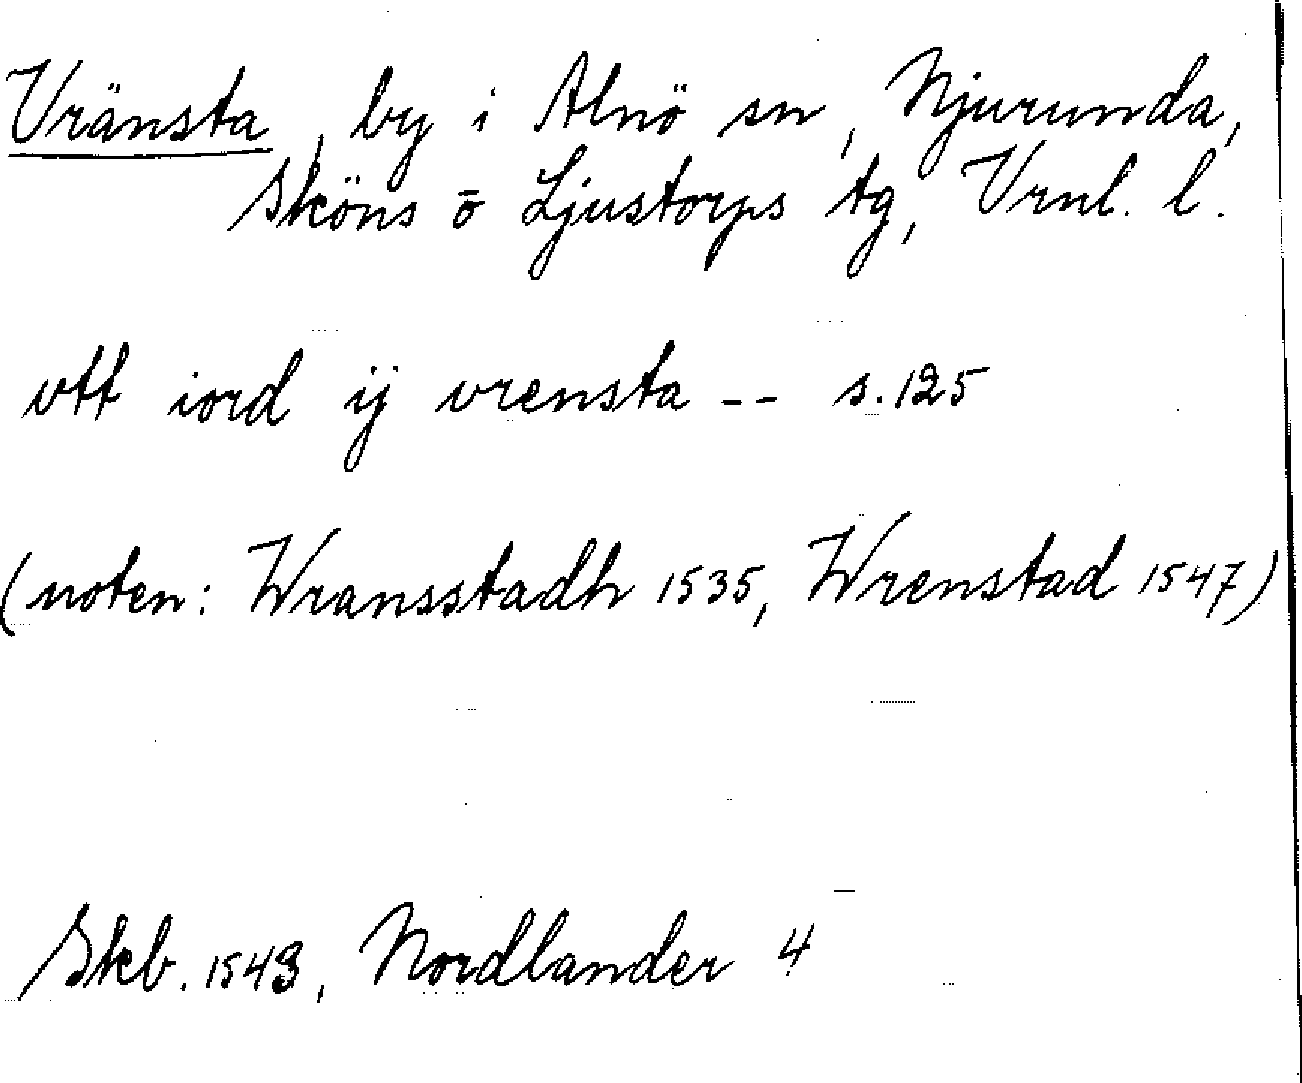 Vränsta, by i Alnö sn, Njurunda,
Sköns o Ljustorps tg, Vrnl. l.
vtt iord ij vrensta -- s. 125
(noten: Wransstadh 1535, Wrenstad 1547)
Skb. 1543, Nordlander 4